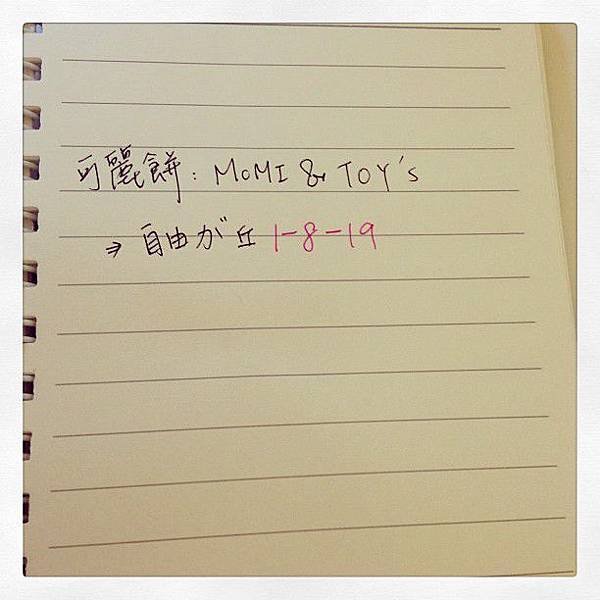 可麗餅: MOMI & TOY's
⇒ 自由が丘 1-8-19